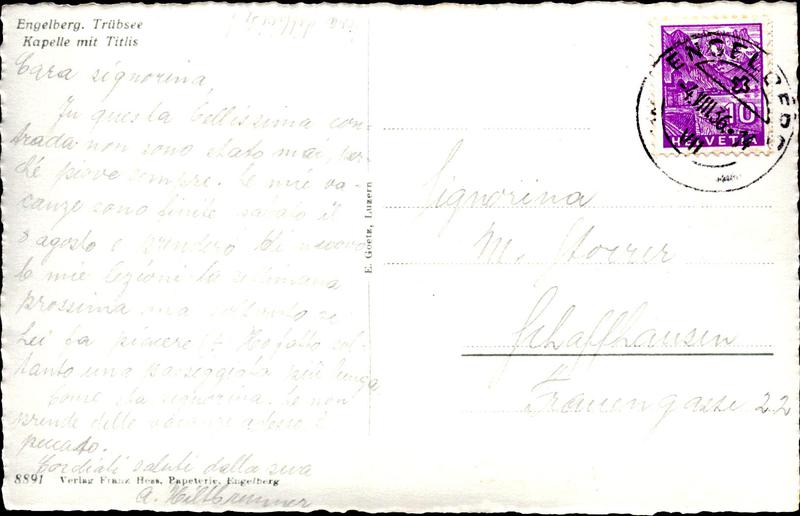 Engelberg. Trübsee
Kapelle mit Titlis
Cara signorina,
In questa bellissima con-
trada non sono stato mai, per-
ché piove sempre. Le mie va-
canze sono finite sabato il
8 agosto e prenderò di nuovo
le mie lezioni la settimana
prossima ma soltanto se
Lei fa piacere Ho fatto sol-
tanto una passeggiata più lunga.
Come sta signorina. Se non
prende delle vacanze adesso è
peccato.
Cordiali saluti dalla sua
A. Hiltbrunner
8891 Verlag Franz Hess, Papeterie, Engelberg
E. Goetz, Luzern
ENGELBERG
4.VIII.36-14
VIII
10
HELVETIA
Signorina
M. Stoerer
Schaffhausen
Frauengasse 22